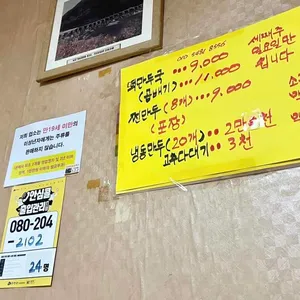 떡만두국 ... 9,000
(곱배기) ... 11,000
찐만두 (8개) ... 9,000
(포장)
냉동만두 (20개) 2만6천
교육다대기 : 3천
세째주
일요일만
쉽니다
저희 업소는 만19세 미만의
미성년자에게는 주류를
판매하지 않습니다.
안심콜
출입관리
080-204
-2102
24명